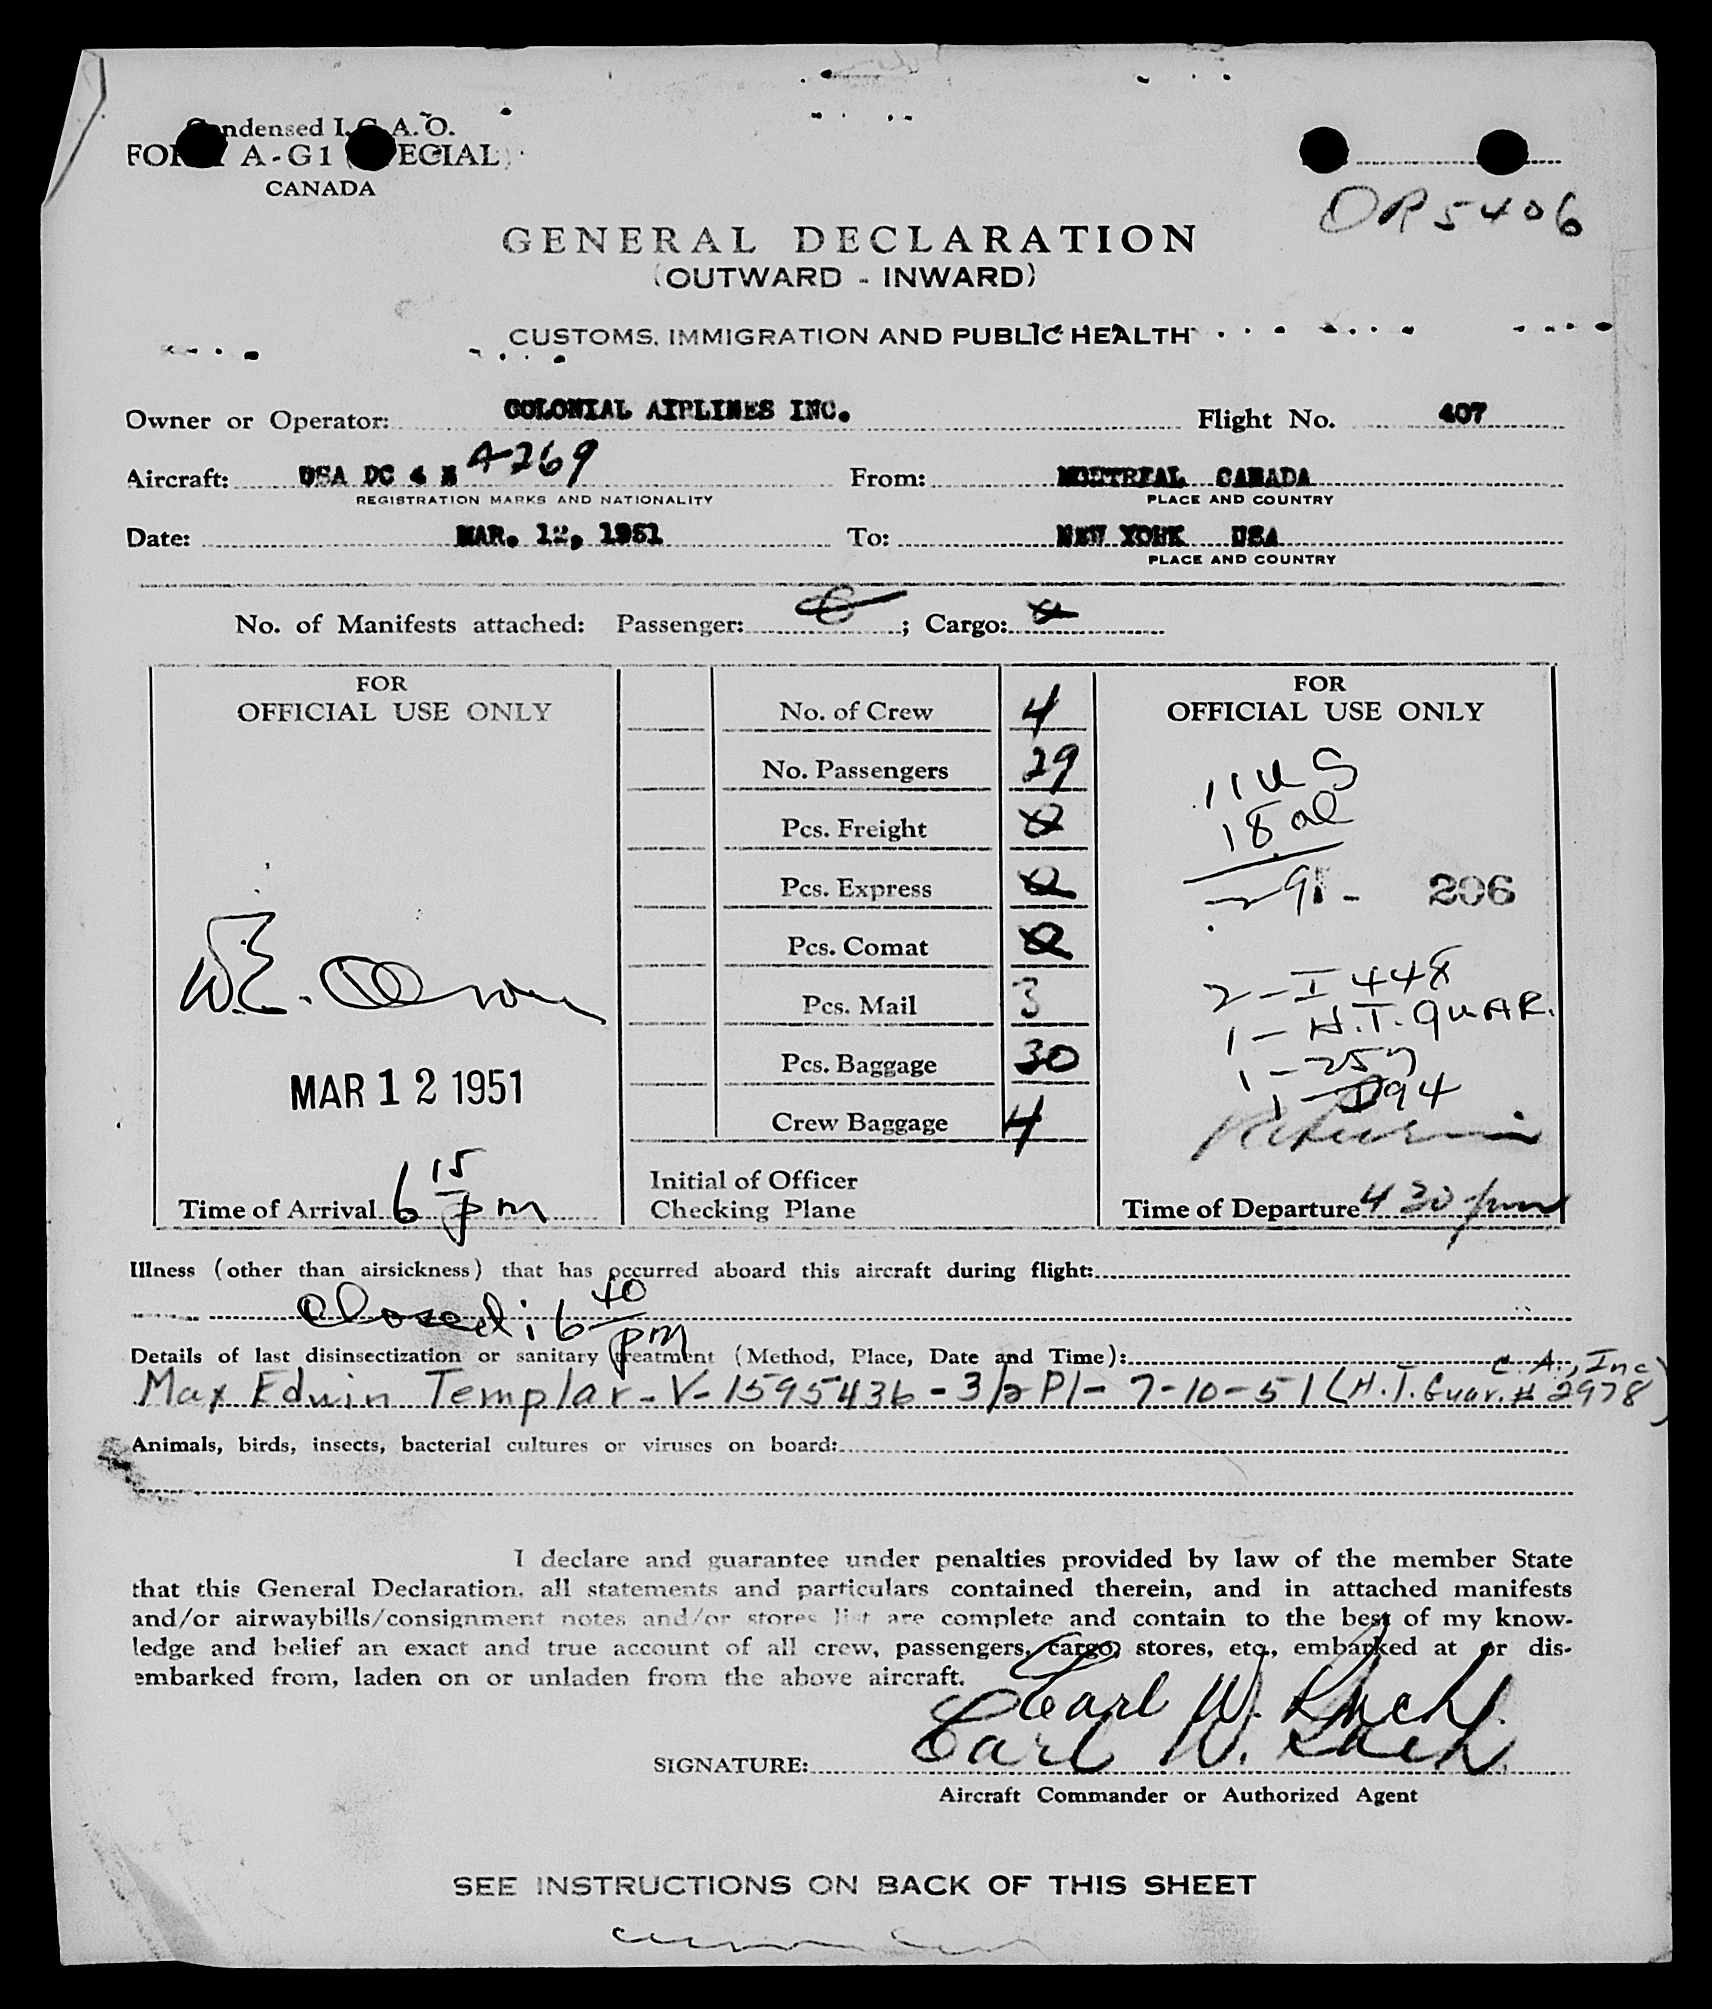 Condensed I.C.A.O.
FORM A-G1 (SPECIAL)
CANADA
OR5406
GENERAL DECLARATION
(OUTWARD - INWARD)
CUSTOMS, IMMIGRATION AND PUBLIC HEALTH
Owner or Operator: COLONIAL AIRLINES INC. Flight No. 407
Aircraft: USA DC 4 N A-269 From: MONTREAL CANADA
REGISTRATION MARKS AND NATIONALITY PLACE AND COUNTRY
Date: MAR. 12, 1951 To: NEW YORK USA
PLACE AND COUNTRY
No. of Manifests attached: Passenger: 0; Cargo: 0
FOR
OFFICIAL USE ONLY
W.E. Olson
MAR 12 1951
Time of Arrival 6 15 pm
No. of Crew 4
No. Passengers 29
Pcs. Freight 0
Pcs. Express 0
Pcs. Comat 0
Pcs. Mail 3
Pcs. Baggage 30
Crew Baggage 4
Initial of Officer
Checking Plane
FOR
OFFICIAL USE ONLY
11 US
18 al
29 -
206
2 - I 448
1 - H.T. QUAR.
1 - 257
1 - I94
Time of Departure 4 30 pm
Illness (other than airsickness) that has occurred aboard this aircraft during flight:
Closed: 6 40 pm
Details of last disinsectization or sanitary treatment (Method, Place, Date and Time):
C.A., Inc
Max Edwin Templar - V-1595436 - 3/2 P1 - 7-10-51 (H.T. Guar. # 2978)
Animals, birds, insects, bacterial cultures or viruses on board:
I declare and guarantee under penalties provided by law of the member State
that this General Declaration, all statements and particulars contained therein, and in attached manifests
and/or airwaybills/consignment notes and/or stores list are complete and contain to the best of my know-
ledge and belief an exact and true account of all crew, passengers, cargo, stores, etc., embarked at or dis-
embarked from, laden on or unladen from the above aircraft.
Carl W.
SIGNATURE: Carl W.
Aircraft Commander or Authorized Agent
SEE INSTRUCTIONS ON BACK OF THIS SHEET